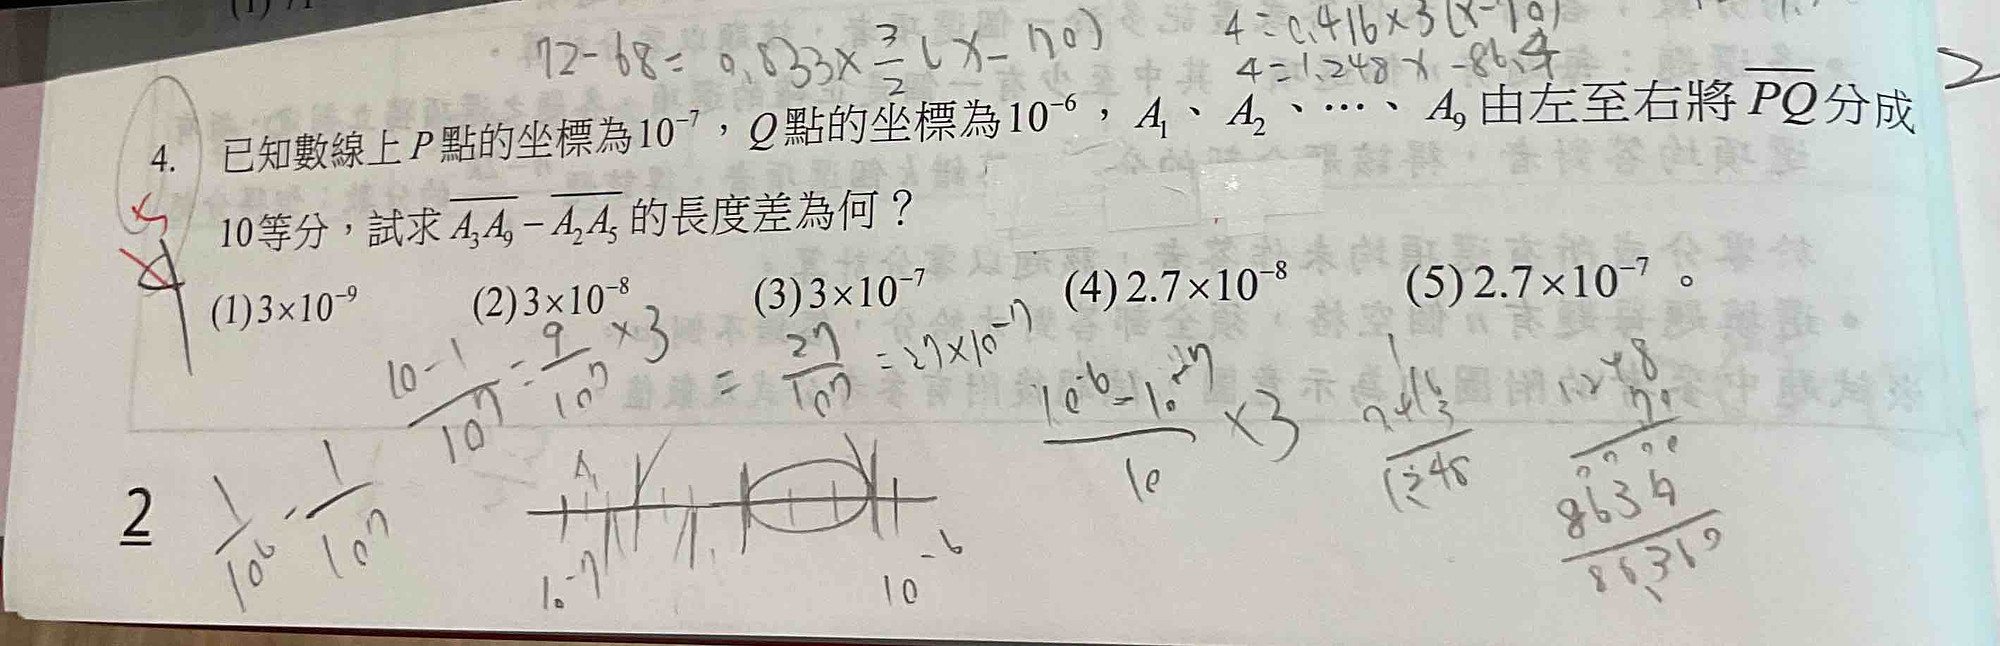 72-68= 0.833×3/2(x-170)
4=0.416×3(x-70)
4=1.248x-86.4
4. 已知數線上P點的坐標為10⁻⁷，Q點的坐標為10⁻⁶，A₁、A₂、⋯、A₉由左至右將PQ分成
10等分，試求A₃A₉－A₂A₅的長度差為何？
(1)3×10⁻⁹ (2)3×10⁻⁸ (3)3×10⁻⁷ (4)2.7×10⁻⁸ (5)2.7×10⁻⁷。
10-1/10⁷=9/10⁷×3=27/10⁷=27×10⁻⁷
10⁻⁶-10⁻⁷/10×3
2
1/10⁶-1/10⁷
A₁
10⁻⁷
10⁻⁶